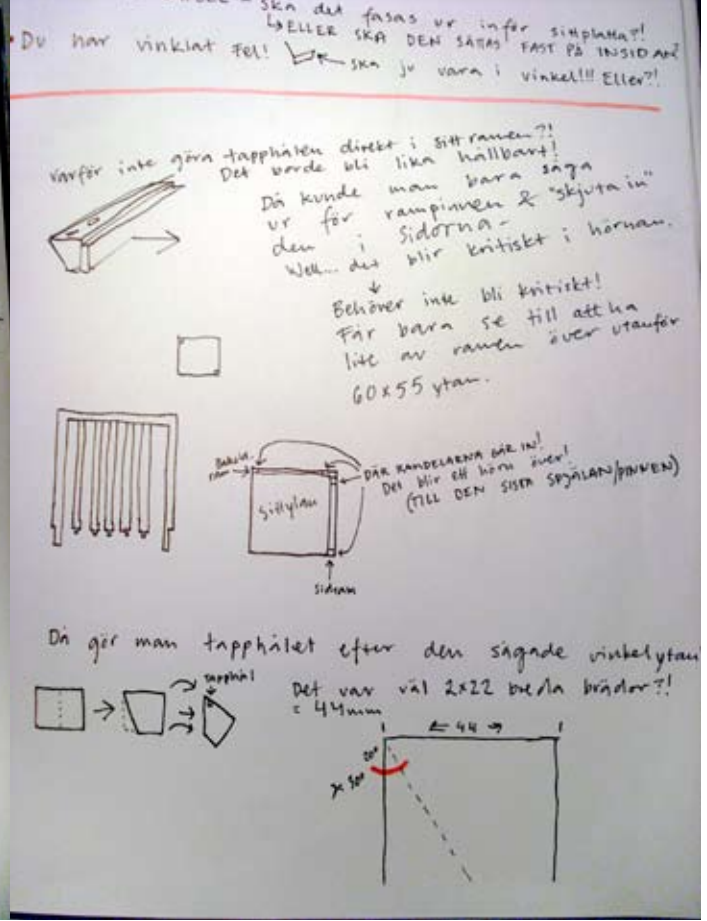 ska det fasas ur inför sittplatta?!
↳ ELLER SKA DEN SÄTTAS FAST PÅ INSIDAN?
• Du har vinklat Fel! ← ska ju vara i vinkel!!! Eller?!
varför inte göra tapphålen direkt i sittramen?!
Det borde bli lika hållbart!
Då kunde man bara såga
ur för rampinnen & "skjuta in"
den i sidorna -
Well... det blir kritiskt i hörnan.
↓
Behöver inte bli kritiskt!
Får bara se till att ha
lite av ramen över utanför
60x55 ytan.
Bakela
ram →
sittytan
DÄR RAMDELARNA GÅR IN!
Det blir ett hörn över!
(TILL DEN SISTA SPJÄLAN/PINNEN)
sidram
Då gör man tapphålet efter den sågade vinkelytan
tapphål
Det var väl 2x22 breda brädor?!
= 44mm
← 44 →
20°
30°